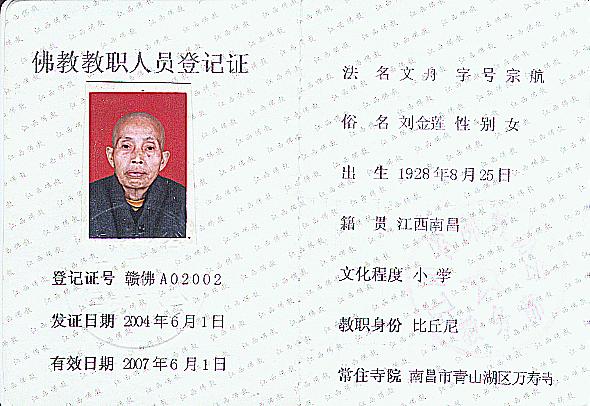 佛教教职人员登记证
登记证号 赣佛A02002
发证日期 2004年6月1日
有效日期 2007年6月1日
法 名 文舟 字 号 宗航
俗 名 刘金莲 性 别 女
出 生 1928年8月25日
籍 贯 江西南昌
文化程度 小 学
教职身份 比丘尼
常住寺院 南昌市青山湖区万寿寺